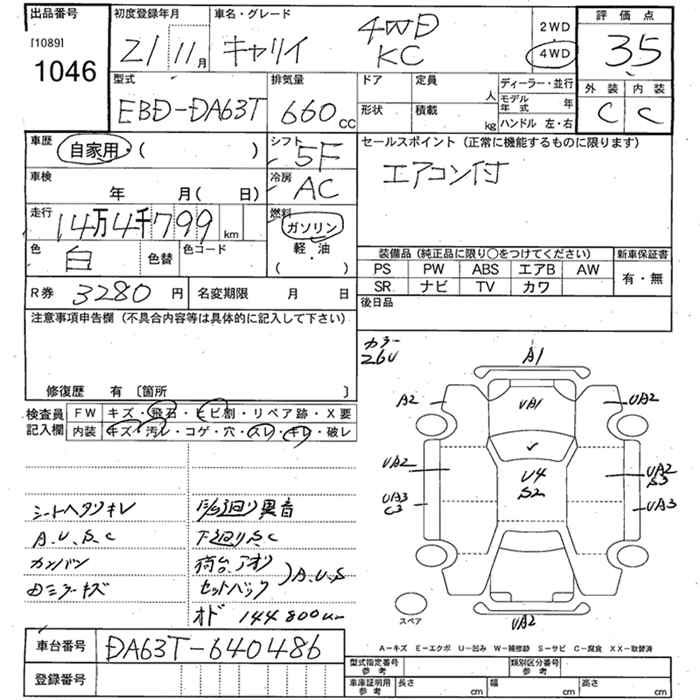 出品番号 初度登録年月 車名・グレード 評価点
[1089] 1046 21 11月 キャリイ 4WD KC 2WD 4WD 3.5
型式 排気量 ドア 定員 人 ディーラー・並行 外装 内装
EBD-DA63T 660cc 形状 積載 kg モデル年式 年 C C
ハンドル 左・右
車歴 自家用・( ) シフト 5F セールスポイント(正常に機能するものに限ります)
車検 年 月(日) 冷房 AC エアコン付
走行 14万4千799km 燃料 ガソリン・軽・油 ( )
色 白 色替 色コード 装備品(純正品に限り○をつけてください) 新車保証書
PS PW ABS エアB AW 有・無
R券 3280円 名変期限 月 日 SR ナビ TV カワ
注意事項申告欄(不具合内容等は具体的に記入して下さい) 後日品
カラー 26U A1
修復歴 有〔箇所 〕
検査員記入欄 FW キズ・飛石・ヒビ割・リペア跡・X要 A2 UA1 UA2
内装 キズ・汚レ・コゲ・穴・スレ・キレ・破レ
UA2 U4 S2 UA2 S3
シートヘタリキレ 異音 UA3 C3 UA3
A.U.S.C 下廻りS.C
カンバン 荷台、アオリ
セットバック )A.U.S
オド 144800km スペア UA2
車台番号 DA63T-640486 A-キズ E-エクボ U-凹み W-補修跡 S-サビ C-腐食 XX-取替済
登録番号 型式指定番号 参考 類別区分番号 参考
車庫証明用 参考 長さ cm 幅 cm 高さ cm